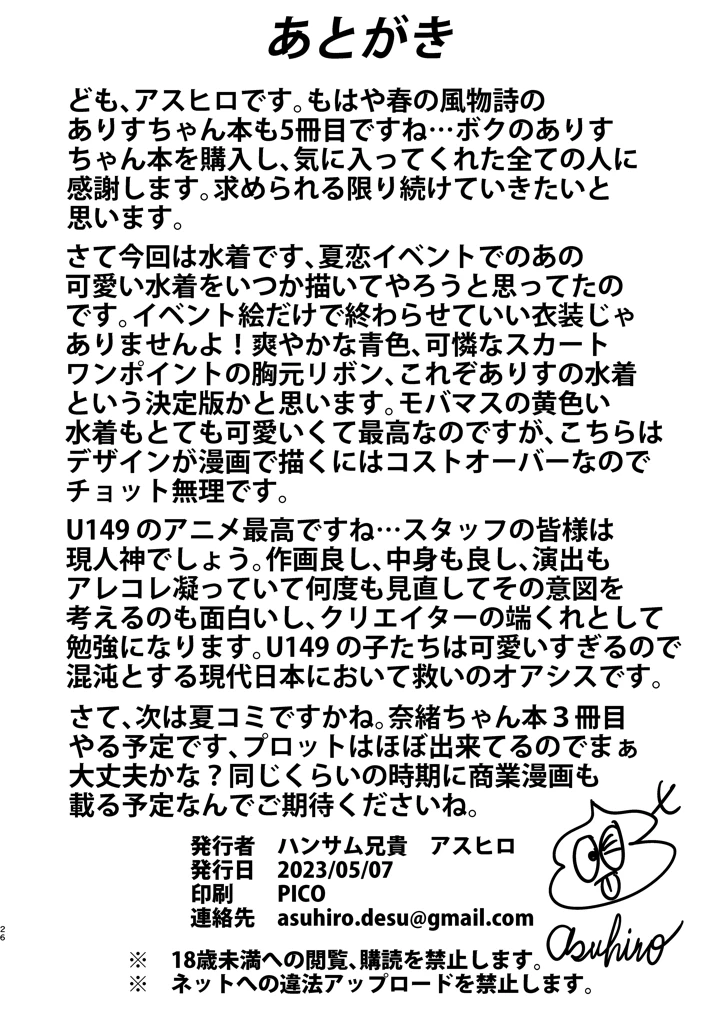 あとがき
ども、アスヒロです。もはや春の風物詩の
ありすちゃん本も5冊目ですね…ボクのありす
ちゃん本を購入し、気に入ってくれた全ての人に
感謝します。求められる限り続けていきたいと
思います。
さて今回は水着です、夏恋イベントでのあの
可愛い水着をいつか描いてやろうと思ってたの
です。イベント絵だけで終わらせていい衣装じゃ
ありませんよ！爽やかな青色、可憐なスカート
ワンポイントの胸元リボン、これぞありすの水着
という決定版かと思います。モバマスの黄色い
水着もとても可愛いくて最高なのですが、こちらは
デザインが漫画で描くにはコストオーバーなので
チョット無理です。
U149のアニメ最高ですね…スタッフの皆様は
現人神でしょう。作画良し、中身も良し、演出も
アレコレ凝っていて何度も見直してその意図を
考えるのも面白いし、クリエイターの端くれとして
勉強になります。U149の子たちは可愛いすぎるので
混沌とする現代日本において救いのオアシスです。
さて、次は夏コミですかね。奈緒ちゃん本３冊目
やる予定です、プロットはほぼ出来てるのでまぁ
大丈夫かな？同じくらいの時期に商業漫画も
載る予定なんでご期待くださいね。
発行者　ハンサム兄貴　アスヒロ
発行日　2023/05/07
印刷　PICO
連絡先　asuhiro.desu@gmail.com
asuhiro
※　18歳未満への閲覧、購読を禁止します。
※　ネットへの違法アップロードを禁止します。
26